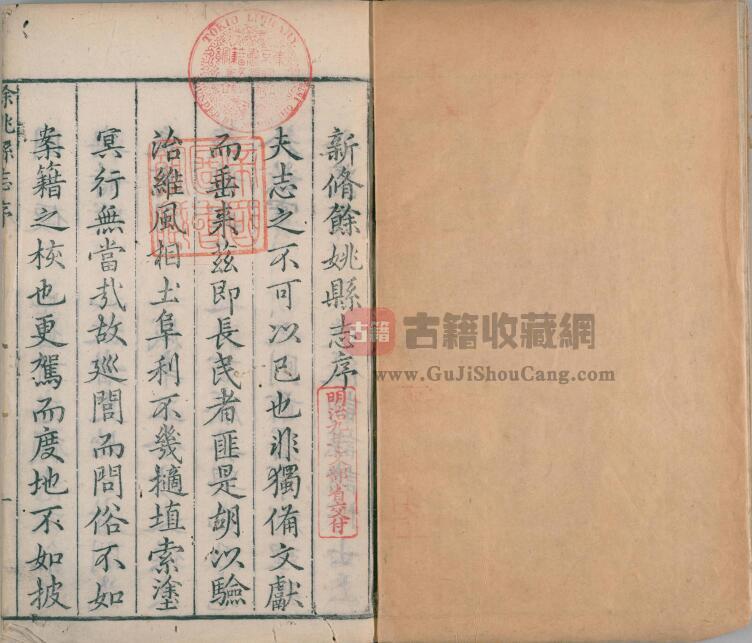 新脩餘姚縣志序
夫志之不可以已也非獨備文獻
而垂來茲即長民者匪是胡以驗
治維風相土阜利不幾擿埴索塗
冥行無當哉故廵閭而問俗不如
案籍之核也更駕而度地不如披
餘姚縣志序
一
TOKIO LIBRARY
明治九年文部省交付
古籍
古籍收藏網
www.GuJiShouCang.com